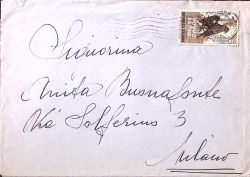 Signorina
Anita Buonafonte
Via Solferino 3
Milano